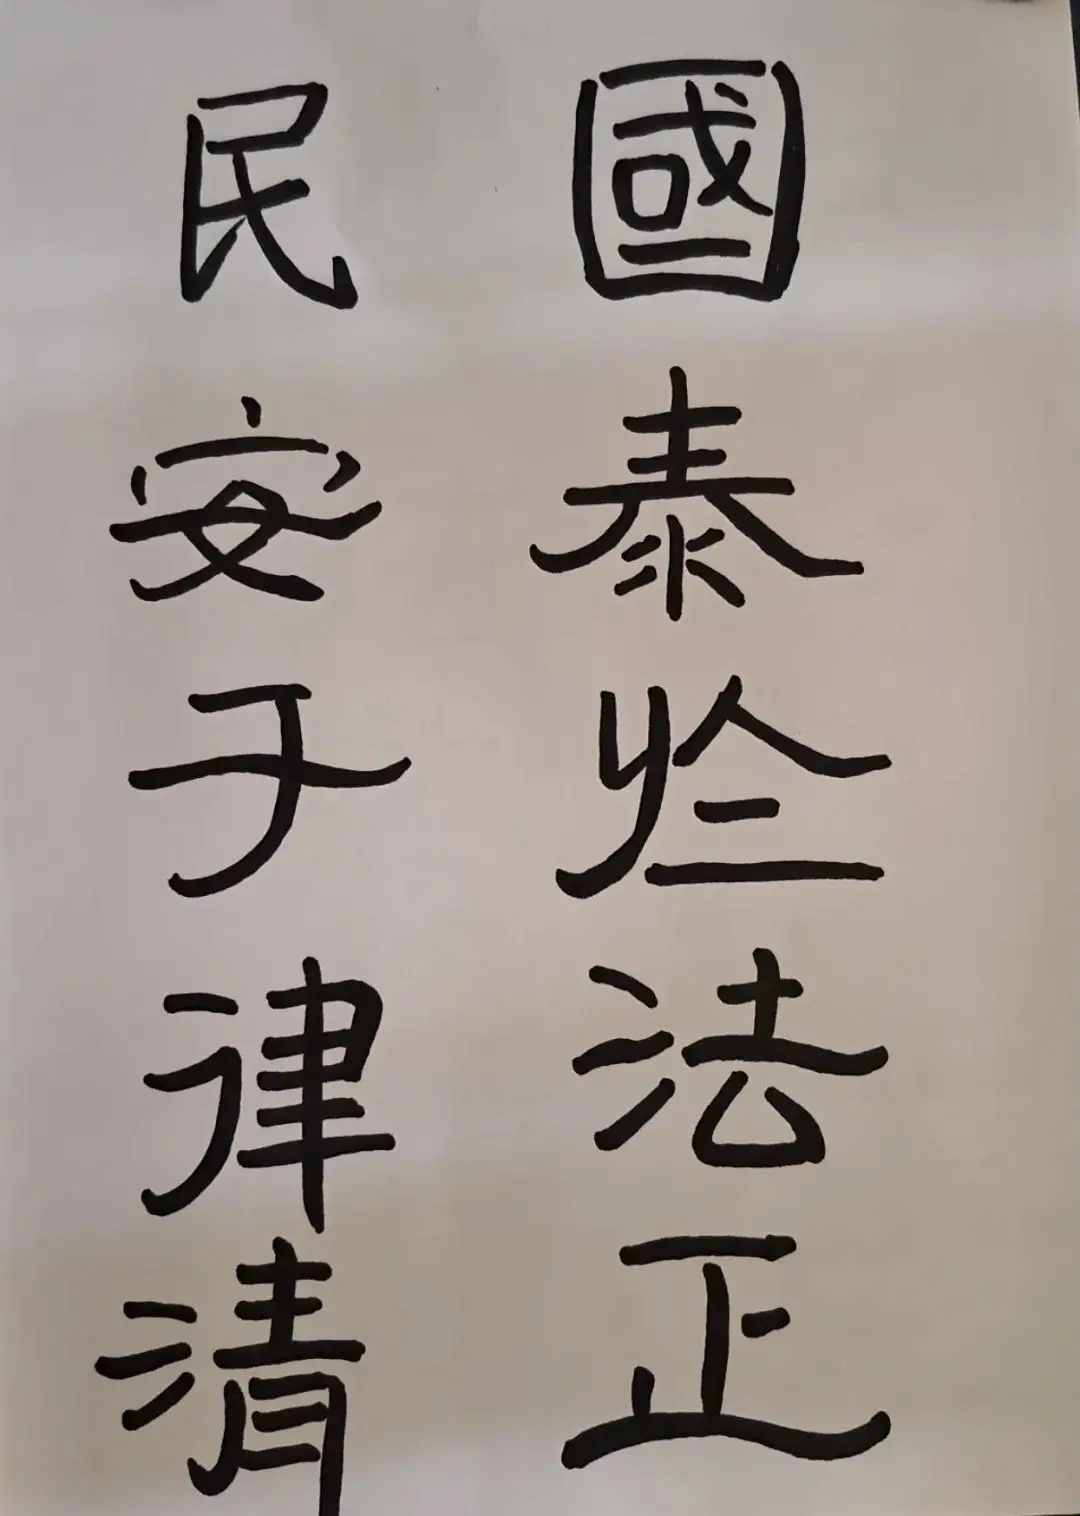 國泰於法正
民安于律清